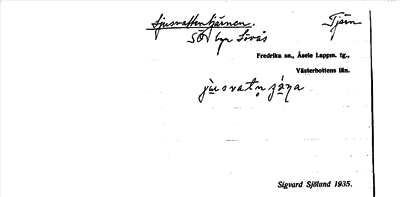 Ljusvattentjärnen. Tjärn
SÖ lyr Sivås
Fredrika sn., Åsele Lappm. tg.,
Västerbottens län.
Sigvard Sjölund 1935.